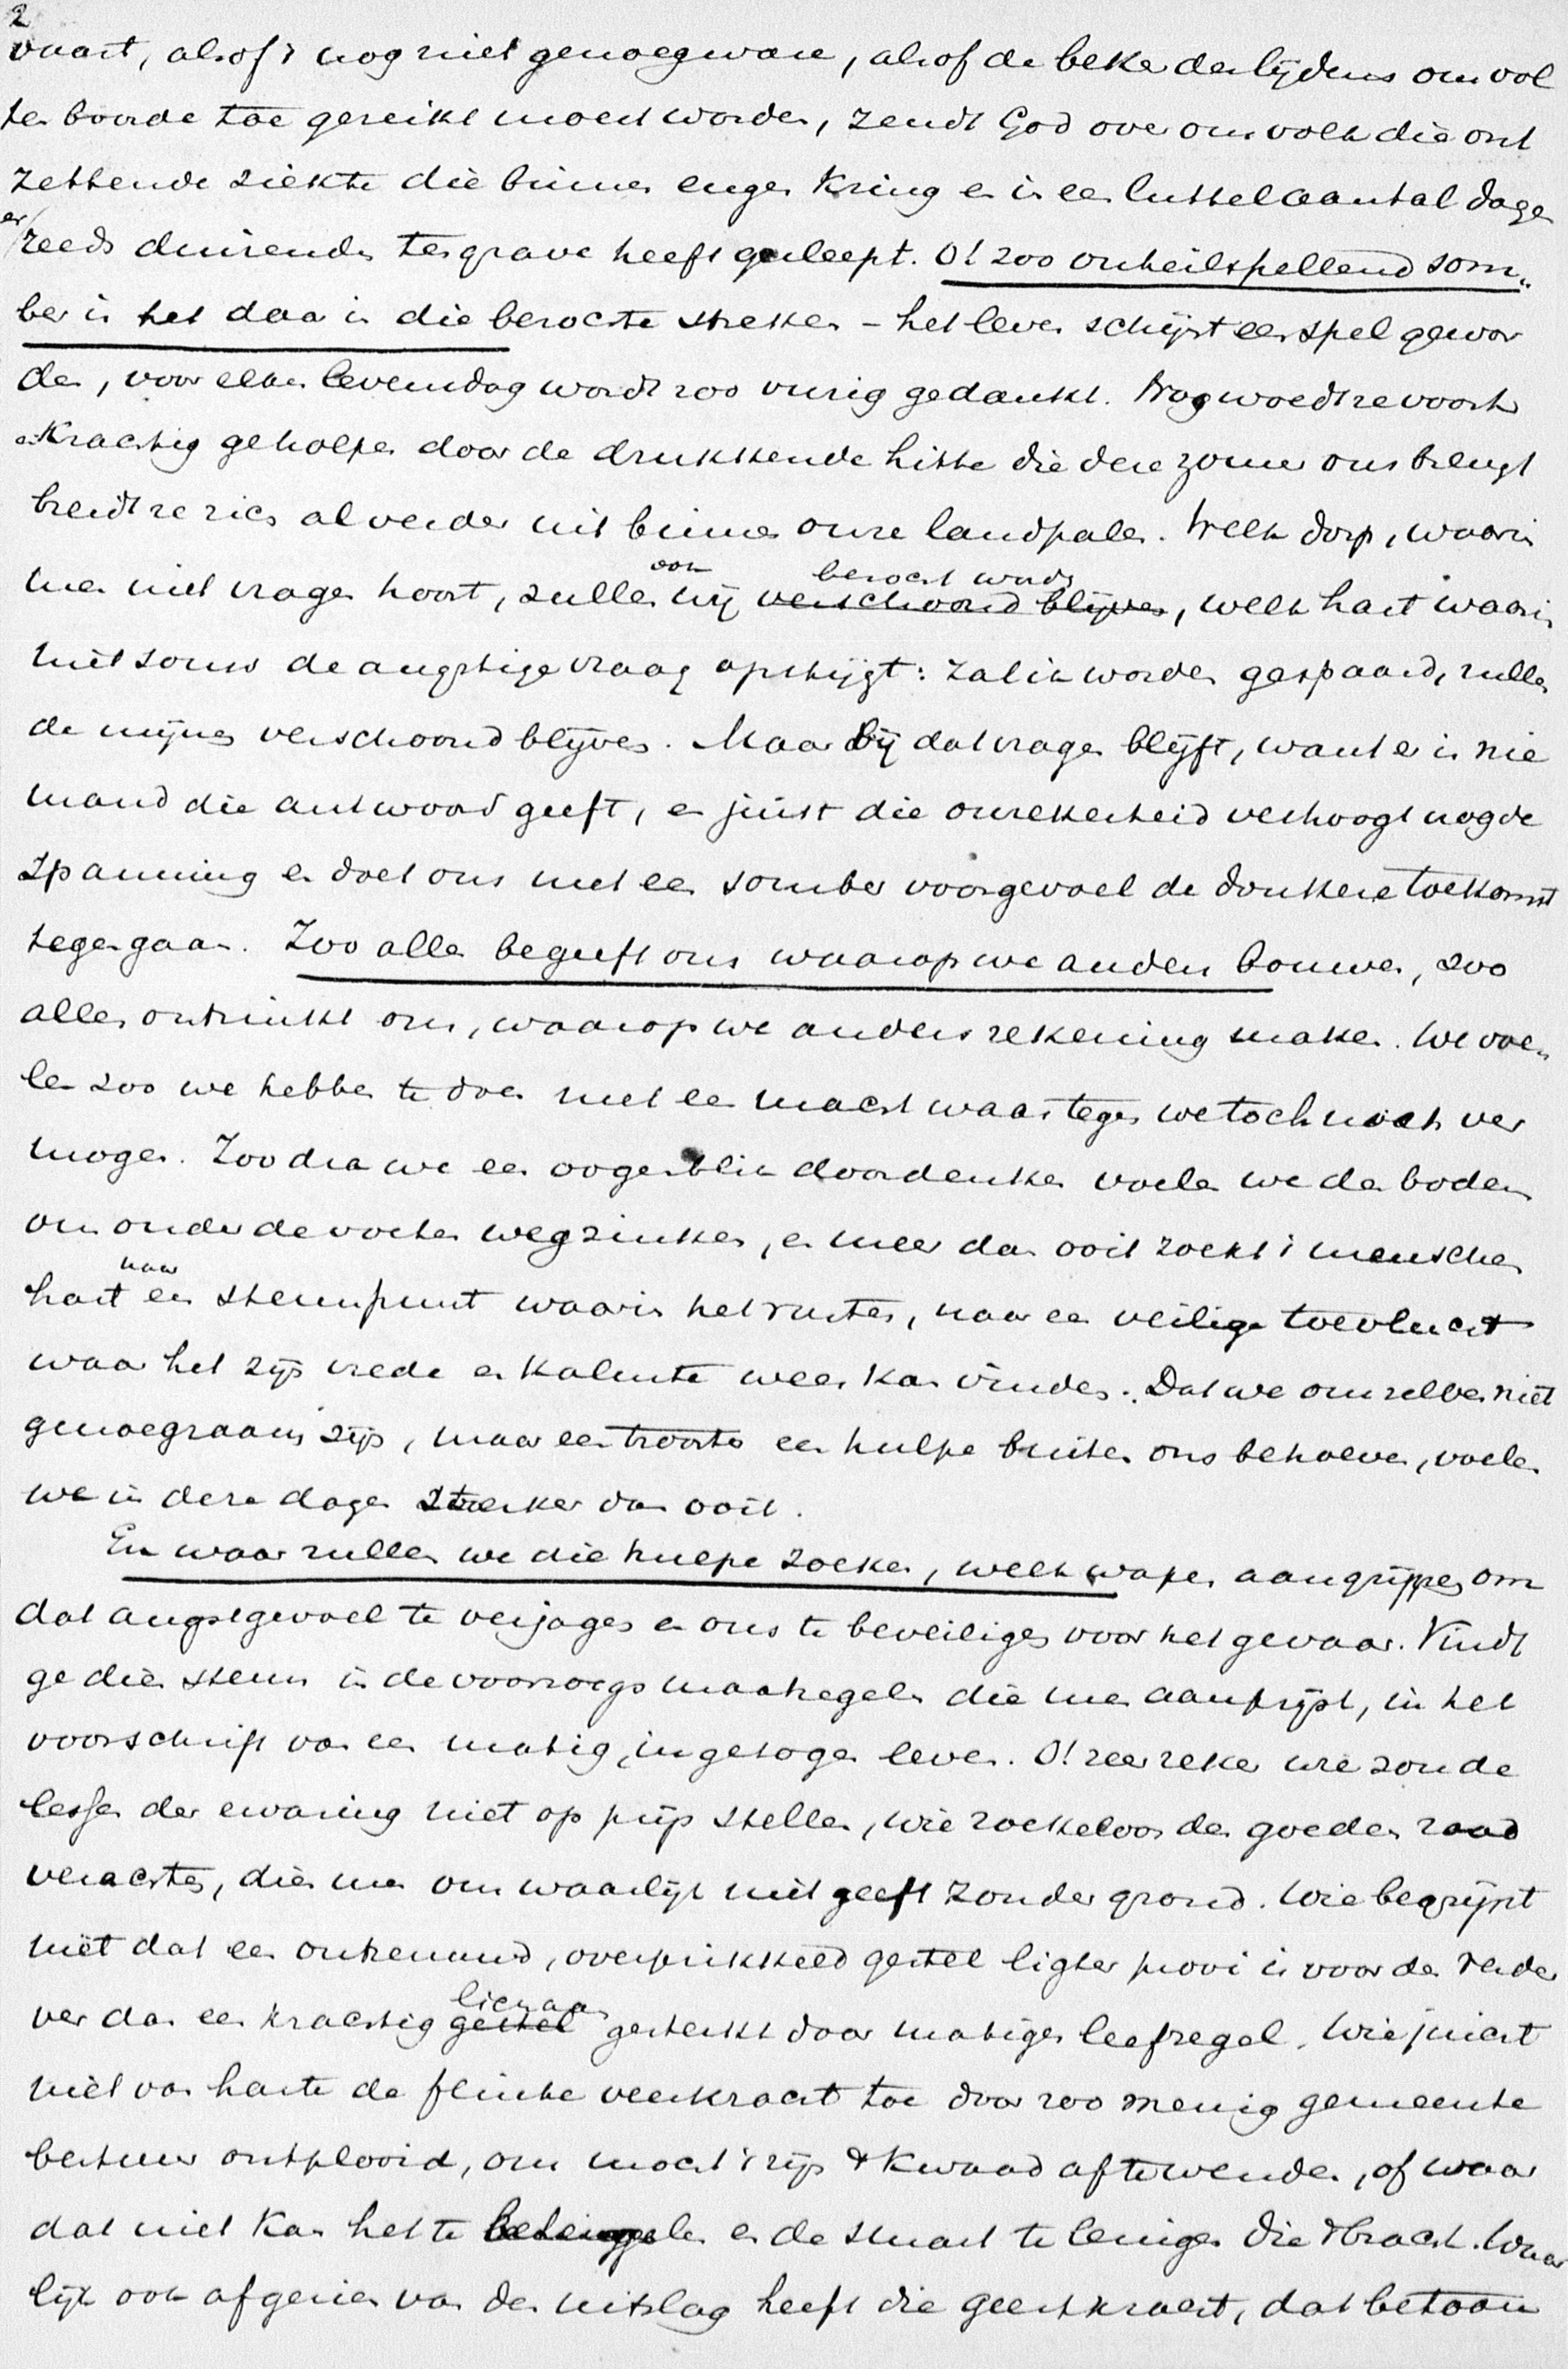 2
vaart, alsof 't nog niet genoeg ware, alsof de beker des lijdens ons vol
ten boorde toe gereikt moest worden, zendt God over ons volk die ont
zettende ziekte die binnen engen kring en in een luttel aantal dagen
er reeds duizenden ten grave heeft gesleept. O! zoo onheilspellend som„
ber is het daar in die bezochte streken – het leven schijnt een spel gewor
den, voor elken levensdag wordt zoo vurig gedankt. Nog woedt ze voort
en krachtig geholpen door de drukkende hitte die deze zomer ons brengt
breidt ze zich al verder uit binnen onze landpalen. Welk dorp, waarin
men niet vragen hoort, zullen wij ook verschoond blijven bezocht worden, welk hart waarin
niet soms de angstige vraag opstijgt: zal ik worden gespaard, zullen
de mijnen verschoond blijven. Maar bij dat vragen blijft, want er is nie
mand die antwoord geeft, en juist die onzekerheid verhoogt nog de
spanning en doet ons met een somber voorgevoel de donkere toekomst
tegengaan. Zoo alles begeeft ons waarop we anders bouwen, zoo
alles ontzinkt ons, waarop we anders rekening maken. We voe„
len zoo we hebben te doen met een macht waartegen we toch niets ver
mogen. Zoodra we een oogenblik doordenken voelen we den bodem
ons onder de voeten wegzinken, en meer dan ooit zoekt 't menschen
hart naar een steunpunt waarin het ruste, naar een veilige toevlucht
waar het zijn vrede en kalmte weer kan vinden. Dat we ons zelven niet
genoegzaam zijn, maar een troost en hulpe buiten ons behoeven, voelen
we in deze dagen sterker dan ooit.
En waar zullen we die hulpe zoeken, welk wapen aangrijpen om
dat angstgevoel te verjagen en ons te beveiligen voor het gevaar. Vindt
ge dien steun in de voorzorgsmaatregelen die men aanprijst, in het
voorschrift van een matig, ingetogen leven. O! zeer zeker wie zou de
lessen der ervaring niet op prijs stellen, wie roekeloos den goeden raad
verachten, dien men ons waarlijk niet geeft zonder grond. Wie begrijpt
niet dat een ontzenuwd, overprikkeld gestel ligter prooi is voor den verder
ver dan een krachtig gestel lichaam gesterkt door matigen leefregel. Wie juicht
niet van harte de flinke veerkracht toe door zoo menig gemeente
bestuur ontplooid, om mocht 't zijn 't kwaad af te wenden, of waar
dat niet kan het te beteugelen en de smart te lenigen die 't bracht. Waar
lijk ook afgezien van den uitslag heeft die geestkracht, dat betoon